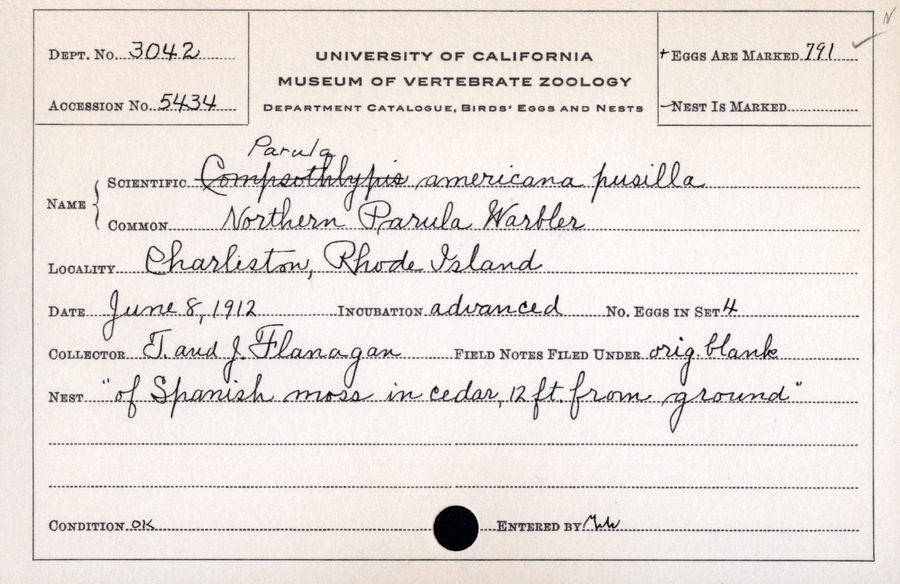 N
DEPT. No. 3042
UNIVERSITY OF CALIFORNIA
+ EGGS ARE MARKED 791
MUSEUM OF VERTEBRATE ZOOLOGY
ACCESSION No. 5434
DEPARTMENT CATALOGUE, BIRDS' EGGS AND NESTS
NEST IS MARKED
Parula
NAME
SCIENTIFIC Compsothlypis americana pusilla
COMMON Northern Parula Warbler
LOCALITY Charleston, Rhode Island
DATE June 8, 1912 INCUBATION advanced No. EGGS IN SET 4
COLLECTOR T. and J. Flanagan FIELD NOTES FILED UNDER orig. blank
NEST "of Spanish moss in cedar, 12 ft. from ground"
CONDITION OK ENTERED BY